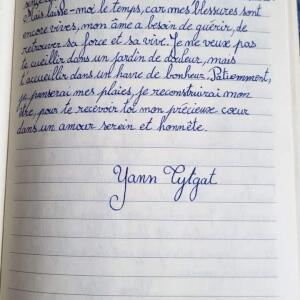 Mais laisse-moi le temps, car mes blessures sont
encore vives, mon âme a besoin de guérir, de
retrouver sa force et sa vive. Je ne veux pas
te cueillir dans un jardin de douleur, mais
t'accueillir dans un havre de bonheur. Patiemment,
je panserai mes plaies, je reconstruirai mon
être, pour te recevoir toi mon précieux cœur
dans un amour serein et honnête.
Yann Tytgat